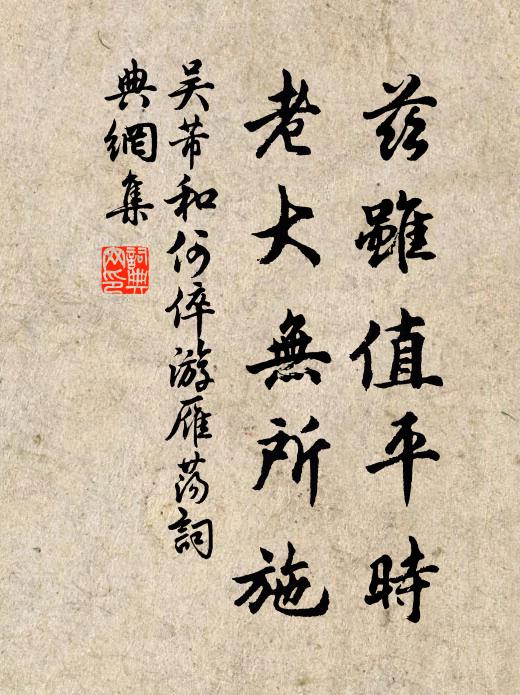 茲雖值平時
老大無所施
吳芾和何倅游雁蕩詞
典網集
詞典
网印